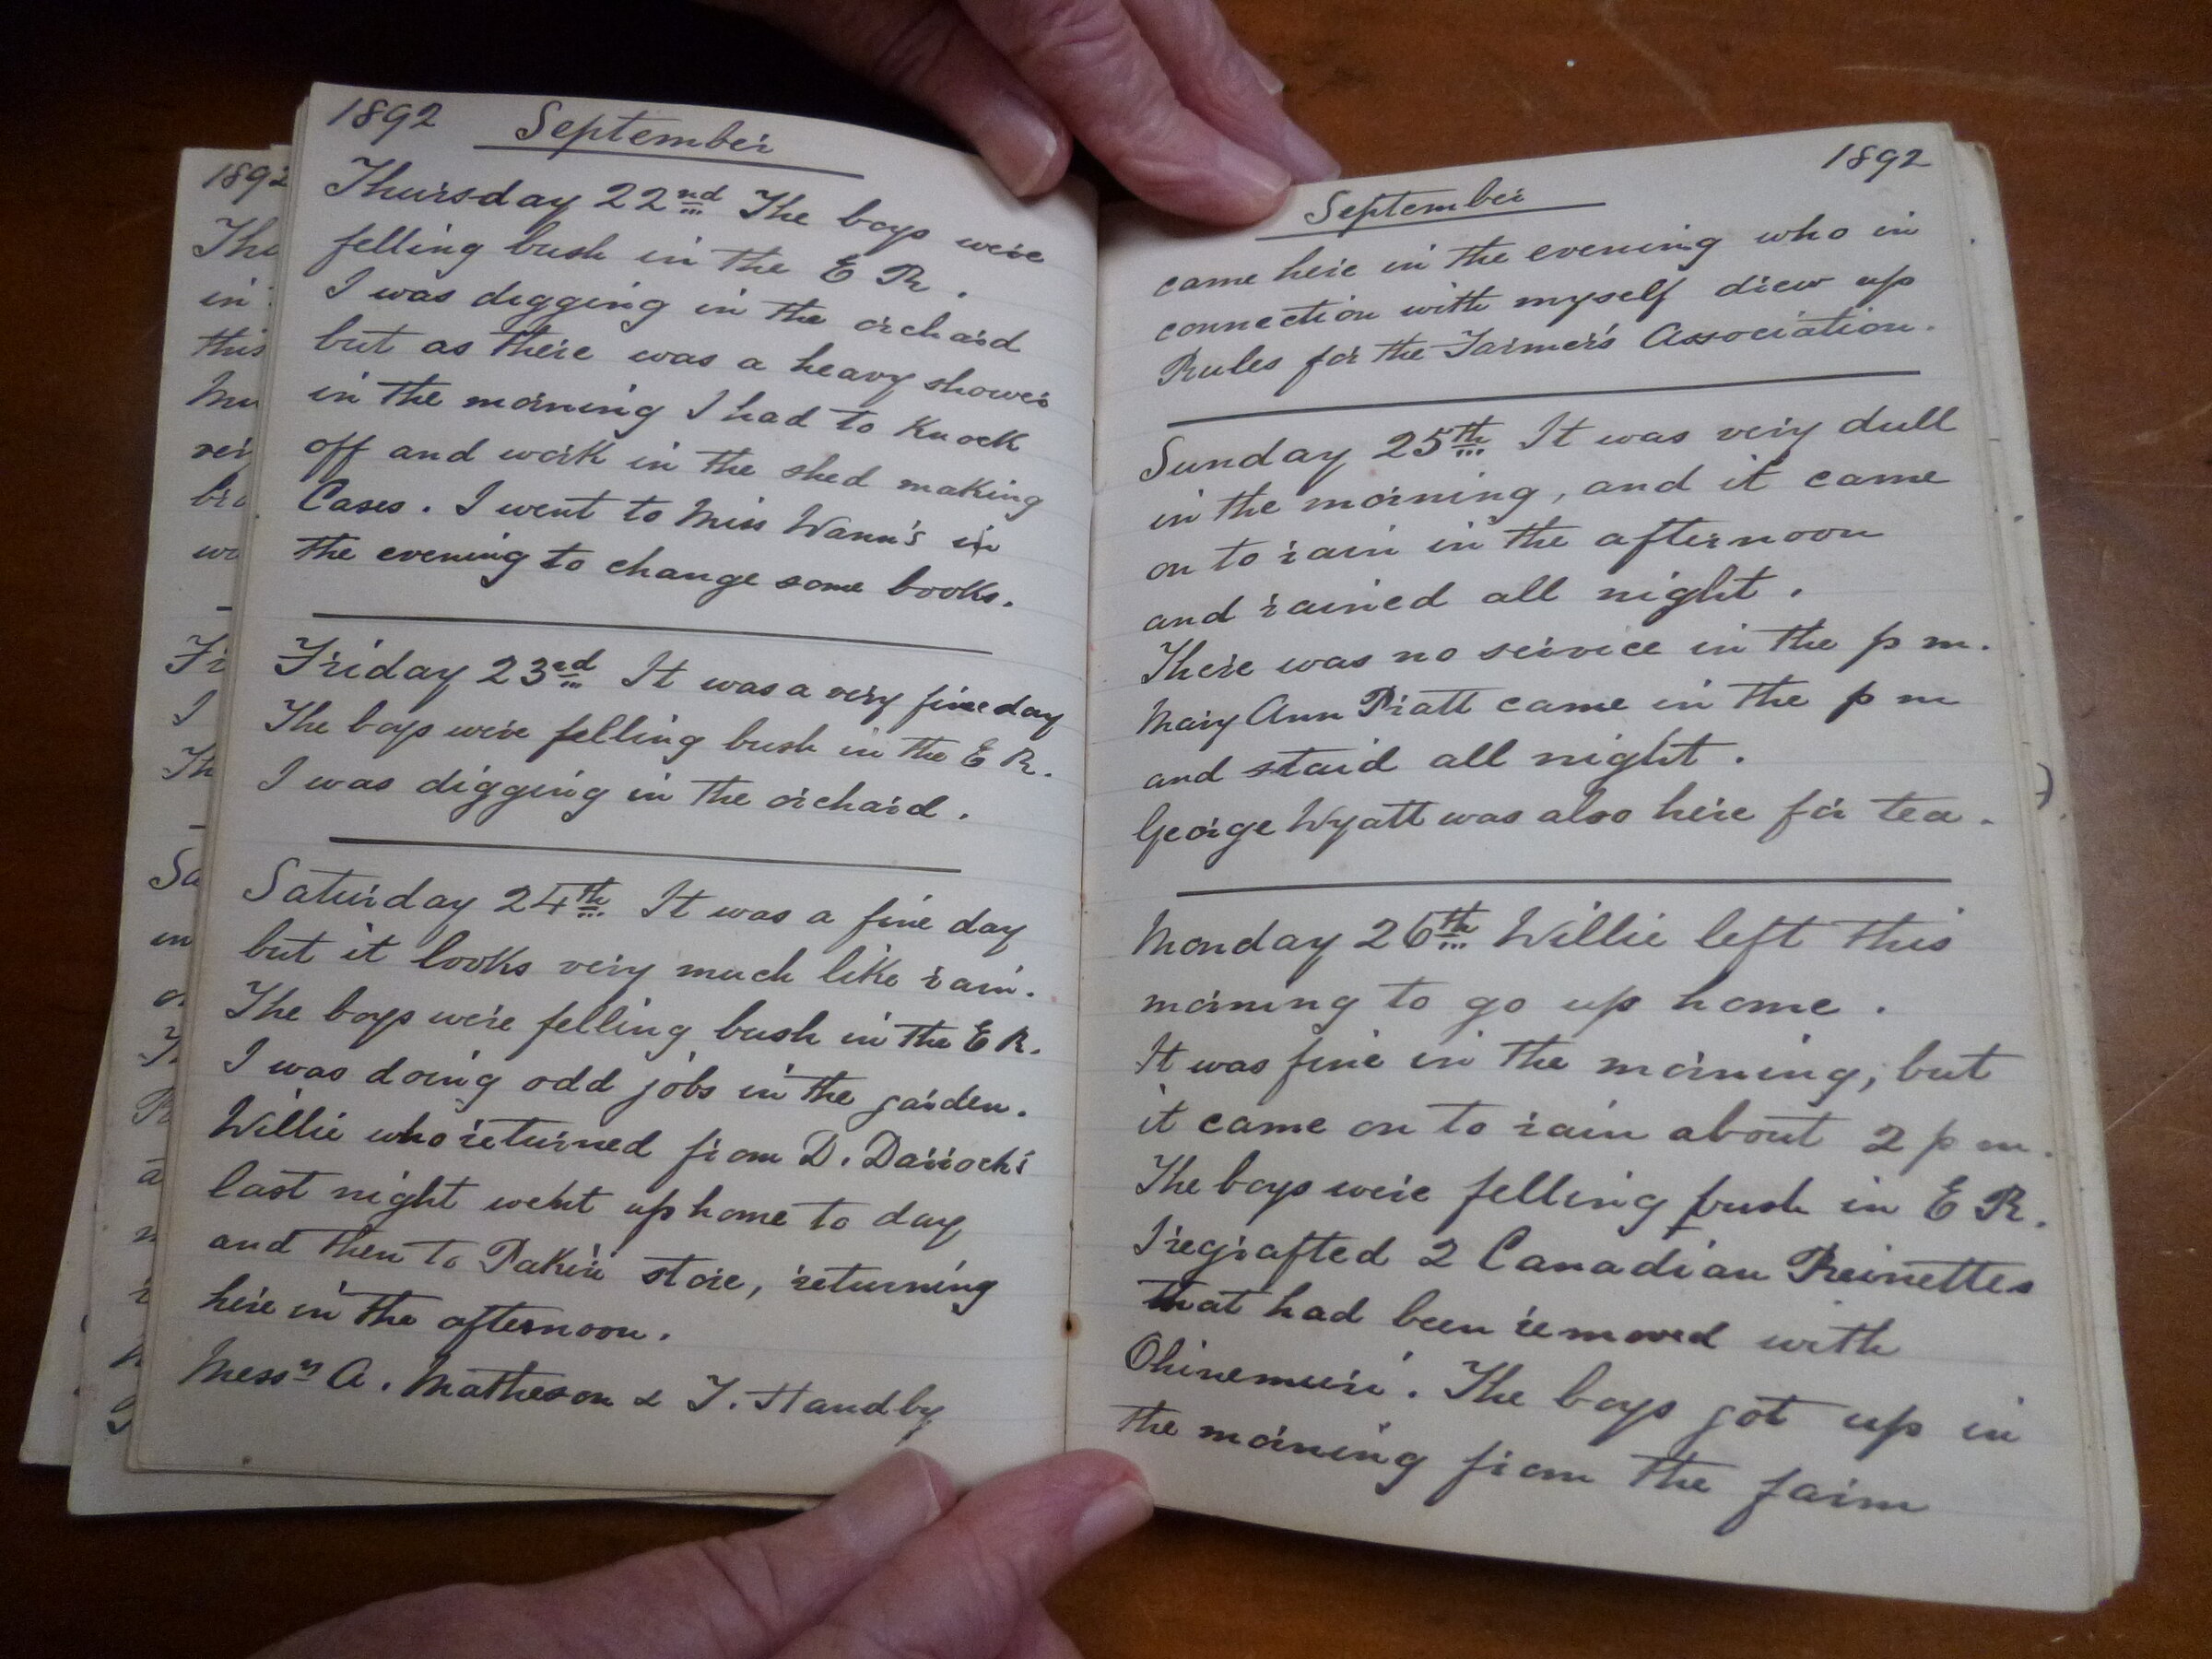 1892 September
Thursday 22nd The boys were
felling bush in the E R.
I was digging in the orchard
but as there was a heavy shower
in the morning I had to knock
off and work in the shed making
Cases. I went to Miss Wann's in
the evening to change some books.
Friday 23rd It was a very fine day
The boys were felling bush in the E R.
I was digging in the orchard.
Saturday 24th It was a fine day
but it looks very much like rain.
The boys were felling bush in the E R.
I was doing odd jobs in the garden.
Willie who returned from D. Darroch's
last night went up home to day
and then to Pakiri store, returning
here in the afternoon.
Messrs A. Matheson & T. Handby
1892
September
came here in the evening who in
connection with myself drew up
Rules for the Farmer's Association.
Sunday 25th It was very dull
in the morning, and it came
on to rain in the afternoon
and rained all night.
There was no service in the p m.
Mary Ann Pratt came in the p m
and staid all night.
George Wyatt was also here for tea.
Monday 26th Willie left this
morning to go up home.
It was fine in the morning, but
it came on to rain about 2 p m.
The boys were felling bush in E R.
I regrafted 2 Canadian Reinettes
that had been removed with
Ohinemuri. The boys got up in
the morning from the farm